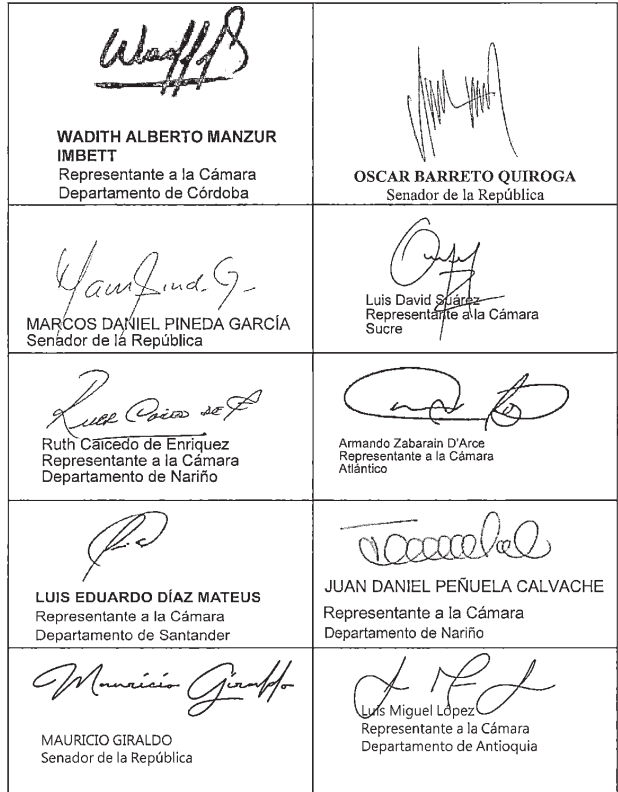 WADITH ALBERTO MANZUR
IMBETT
Representante a la Cámara
Departamento de Córdoba
OSCAR BARRETO QUIROGA
Senador de la República
MARCOS DANIEL PINEDA GARCÍA
Senador de la República
Luis David Suárez
Representante a la Cámara
Sucre
Ruth Caicedo de E
Ruth Caicedo de Enriquez
Representante a la Cámara
Departamento de Nariño
Armando Zabarain D'Arce
Representante a la Cámara
Atlántico
LUIS EDUARDO DÍAZ MATEUS
Representante a la Cámara
Departamento de Santander
JUAN DANIEL PEÑUELA CALVACHE
Representante a la Cámara
Departamento de Nariño
Mauricio Giraldo
MAURICIO GIRALDO
Senador de la República
Luis Miguel López
Representante a la Cámara
Departamento de Antioquia